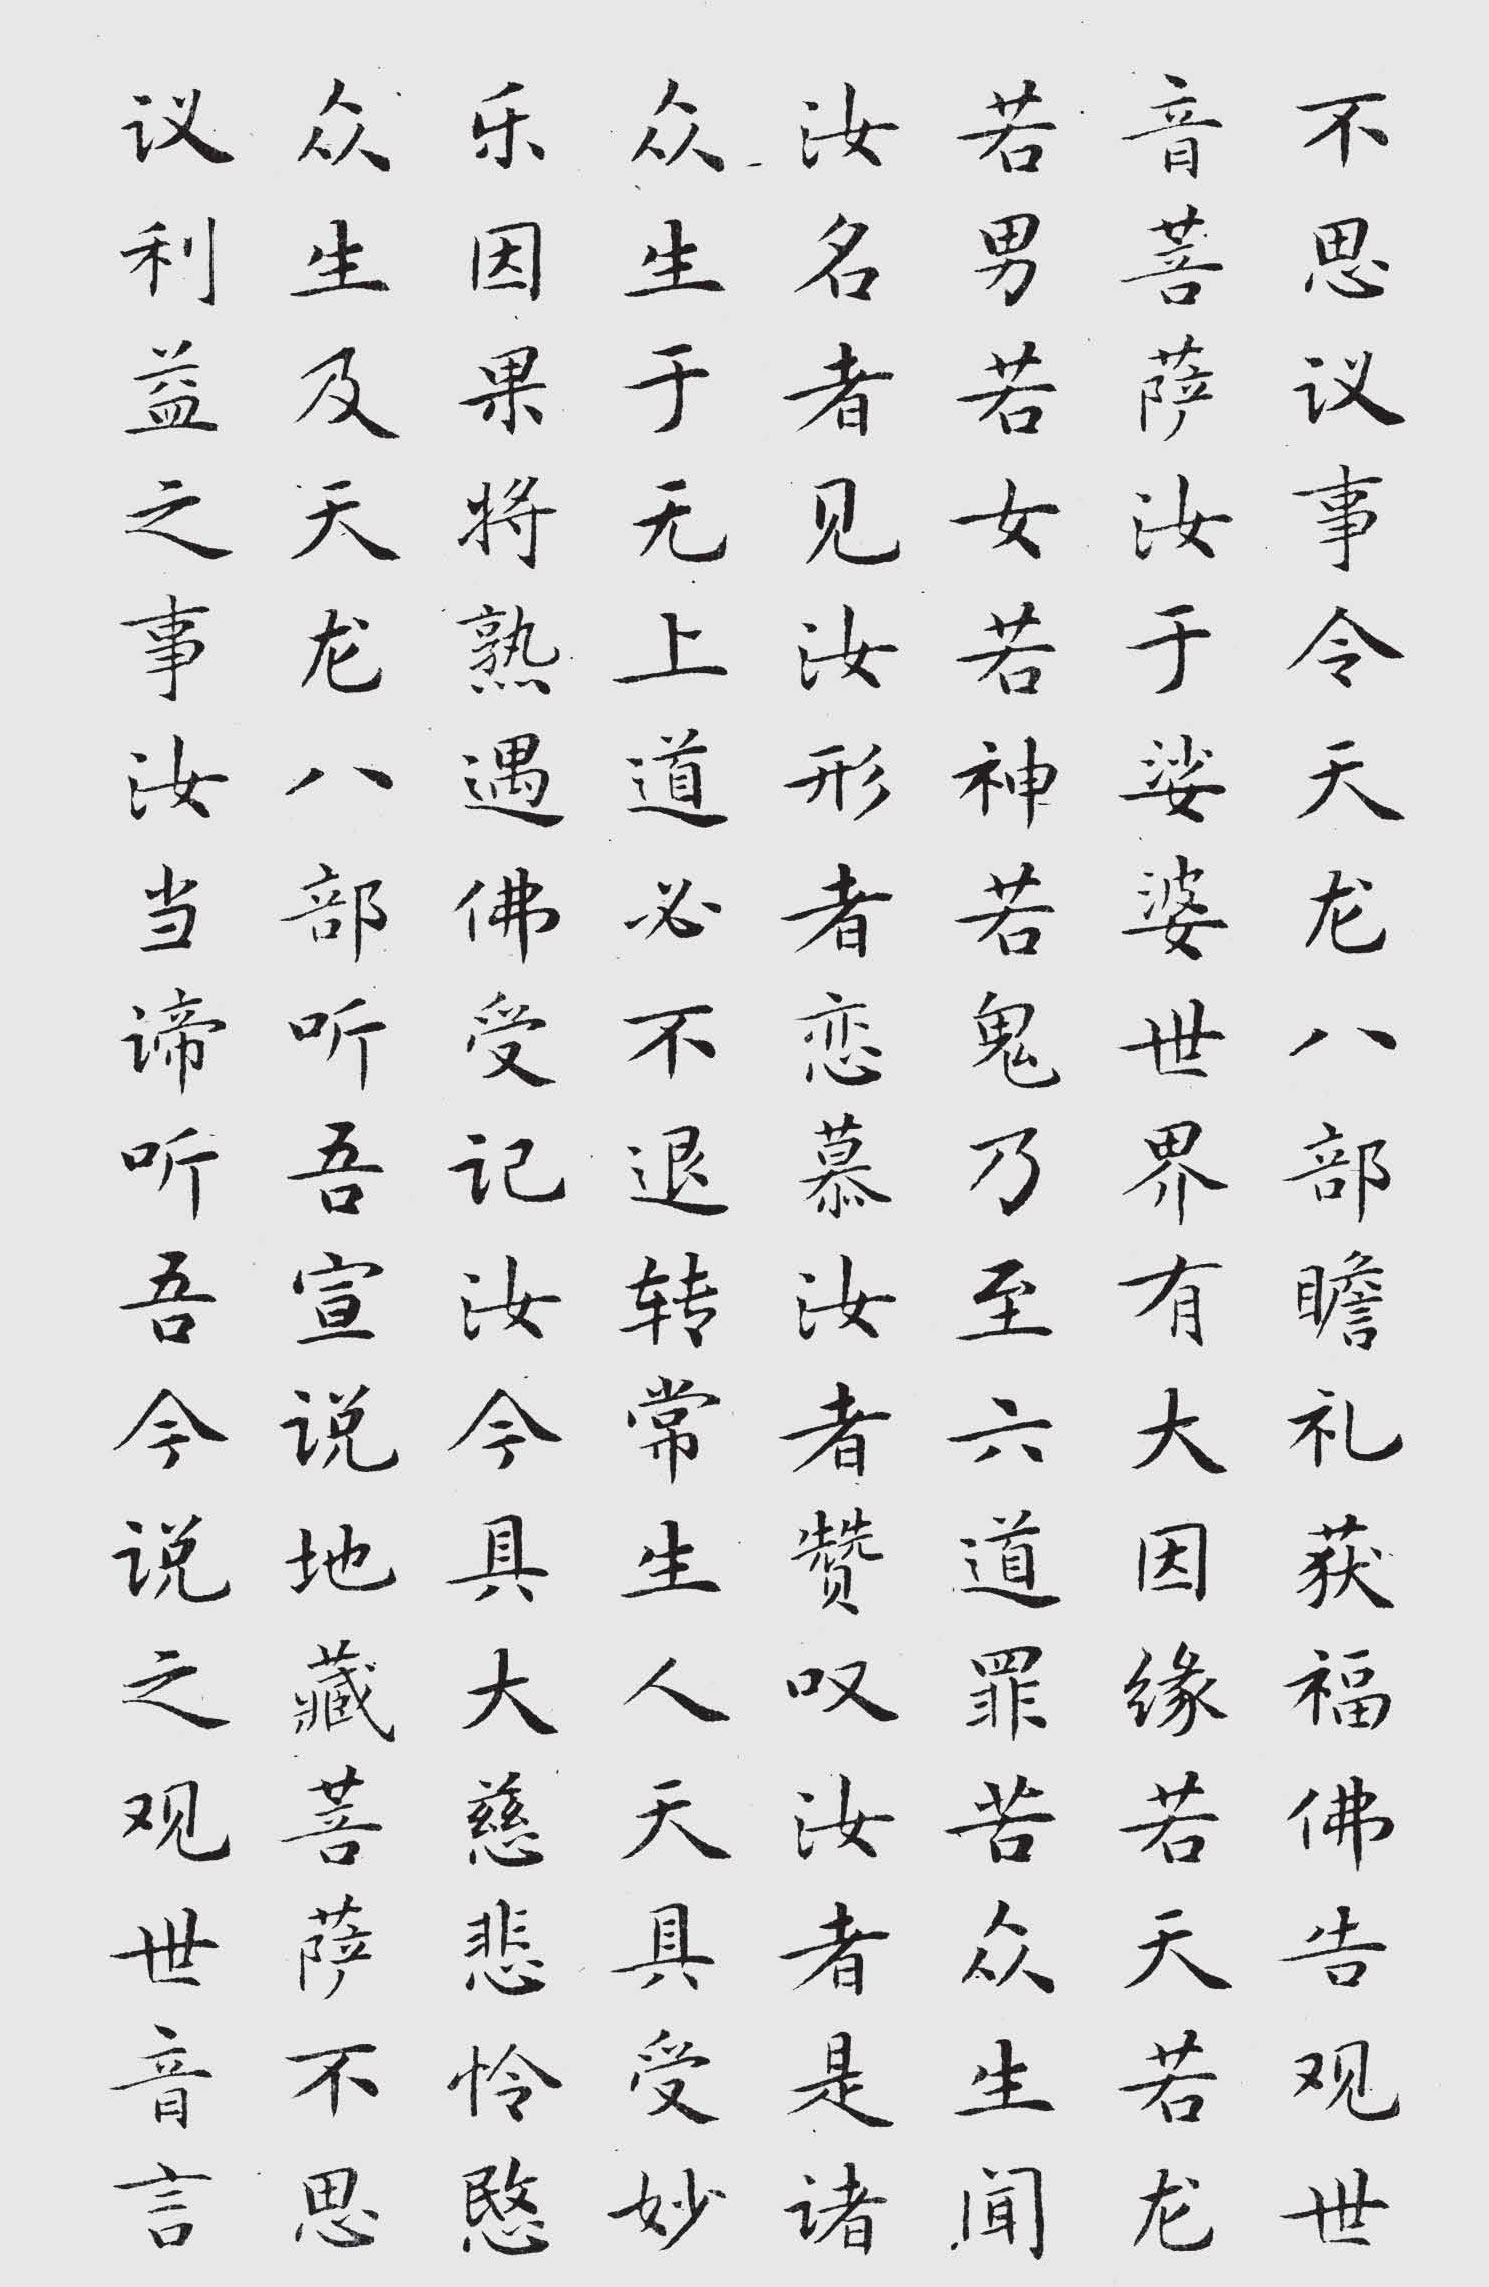 不思议事令天龙八部瞻礼获福佛告观世
音菩萨汝于娑婆世界有大因缘若天若龙
若男若女若神若鬼乃至六道罪苦众生闻
汝名者见汝形者恋慕汝者赞叹汝者是诸
众生于无上道必不退转常生人天具受妙
乐因果将熟遇佛受记汝今具大慈悲怜愍
众生及天龙八部听吾宣说地藏菩萨不思
议利益之事汝当谛听吾今说之观世音言